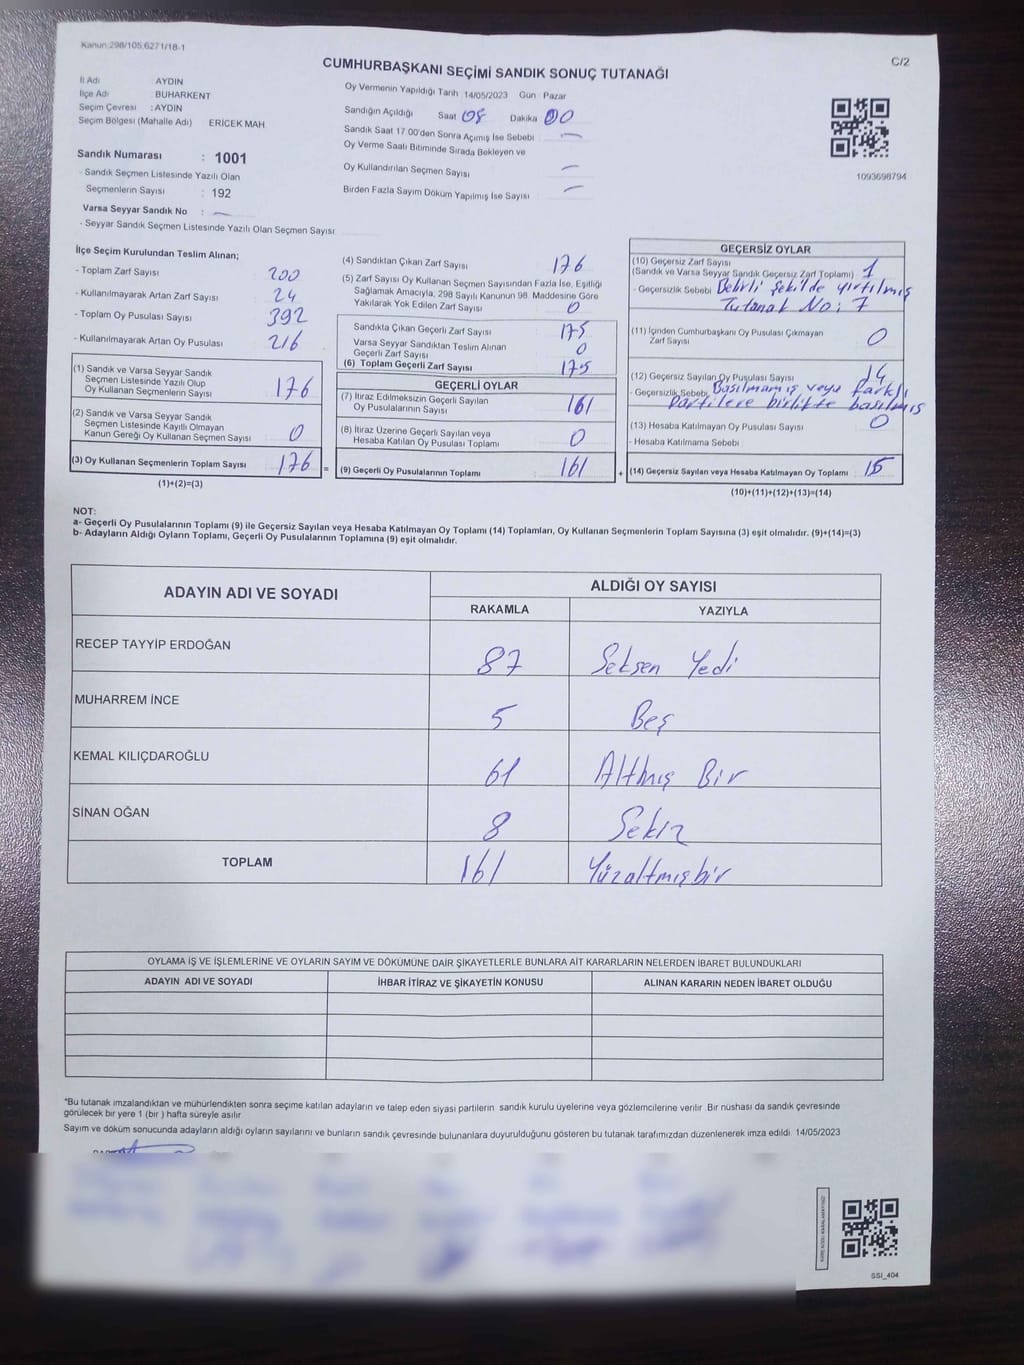 Kanun:298/105,6271/18-1
C/2
CUMHURBAŞKANI SEÇİMİ SANDIK SONUÇ TUTANAĞI
İl Adı AYDIN
İlçe Adı BUHARKENT
Seçim Çevresi :AYDIN
Seçim Bölgesi (Mahalle Adı) ERİCEK MAH
Sandık Numarası : 1001
- Sandık Seçmen Listesinde Yazılı Olan
Seçmenlerin Sayısı : 192
Varsa Seyyar Sandık No : —
- Seyyar Sandık Seçmen Listesinde Yazılı Olan Seçmen Sayısı
Oy Vermenin Yapıldığı Tarih 14/05/2023 Gün Pazar
Sandığın Açıldığı Saat 08 Dakika 00
Sandık Saat 17.00'den Sonra Açılmış İse Sebebi —
Oy Verme Saati Bitiminde Sırada Bekleyen ve
Oy Kullandırılan Seçmen Sayısı —
Birden Fazla Sayım Döküm Yapılmış İse Sayısı —
1093698794
İlçe Seçim Kurulundan Teslim Alınan;
- Toplam Zarf Sayısı 200
- Kullanılmayarak Artan Zarf Sayısı 24
- Toplam Oy Pusulası Sayısı 392
- Kullanılmayarak Artan Oy Pusulası 216
(1) Sandık ve Varsa Seyyar Sandık
Seçmen Listesinde Yazılı Olup
Oy Kullanan Seçmenlerin Sayısı 176
(2) Sandık ve Varsa Seyyar Sandık
Seçmen Listesinde Kayıtlı Olmayan
Kanun Gereği Oy Kullanan Seçmen Sayısı 0
(3) Oy Kullanan Seçmenlerin Toplam Sayısı 176 =
(1)+(2)=(3)
(4) Sandıktan Çıkan Zarf Sayısı 176
(5) Zarf Sayısı Oy Kullanan Seçmen Sayısından Fazla İse, Eşitliği
Sağlamak Amacıyla, 298 Sayılı Kanunun 98. Maddesine Göre
Yakılarak Yok Edilen Zarf Sayısı 0
Sandıkta Çıkan Geçerli Zarf Sayısı 175
Varsa Seyyar Sandıktan Teslim Alınan
Geçerli Zarf Sayısı 0
(6) Toplam Geçerli Zarf Sayısı 175
GEÇERLİ OYLAR
(7) İtiraz Edilmeksizin Geçerli Sayılan
Oy Pusulalarının Sayısı 161
(8) İtiraz Üzerine Geçerli Sayılan veya
Hesaba Katılan Oy Pusulası Toplamı 0
(9) Geçerli Oy Pusulalarının Toplamı 161 +
GEÇERSİZ OYLAR
(10) Geçersiz Zarf Sayısı
(Sandık ve Varsa Seyyar Sandık Geçersiz Zarf Toplamı) 1
- Geçersizlik Sebebi Belirli Şekilde yırtılmış
Tutanak No: 7
(11) İçinden Cumhurbaşkanı Oy Pusulası Çıkmayan
Zarf Sayısı 0
(12) Geçersiz Sayılan Oy Pusulası Sayısı 14
- Geçersizlik Sebebi Basılmamış veya farklı
Partilere birlikte basılmış
(13) Hesaba Katılmayan Oy Pusulası Sayısı 0
- Hesaba Katılmama Sebebi
(14) Geçersiz Sayılan veya Hesaba Katılmayan Oy Toplamı 15
(10)+(11)+(12)+(13)=(14)
NOT:
a- Geçerli Oy Pusulalarının Toplamı (9) ile Geçersiz Sayılan veya Hesaba Katılmayan Oy Toplamı (14) Toplamları, Oy Kullanan Seçmenlerin Toplam Sayısına (3) eşit olmalıdır. (9)+(14)=(3)
b- Adayların Aldığı Oyların Toplamı, Geçerli Oy Pusulalarının Toplamına (9) eşit olmalıdır.
ADAYIN ADI VE SOYADI
ALDIĞI OY SAYISI
RAKAMLA YAZIYLA
RECEP TAYYİP ERDOĞAN 87 Seksen Yedi
MUHARREM İNCE 5 Beş
KEMAL KILIÇDAROĞLU 61 Altmış Bir
SİNAN OĞAN 8 Sekiz
TOPLAM 161 Yüzaltmışbir
OYLAMA İŞ VE İŞLEMLERİNE VE OYLARIN SAYIM VE DÖKÜMÜNE DAİR ŞİKAYETLERLE BUNLARA AİT KARARLARIN NELERDEN İBARET BULUNDUKLARI
ADAYIN ADI VE SOYADI İHBAR İTİRAZ VE ŞİKAYETİN KONUSU ALINAN KARARIN NEDEN İBARET OLDUĞU
*Bu tutanak imzalandıktan ve mühürlendikten sonra seçime katılan adayların ve talep eden siyasi partilerin sandık kurulu üyelerine veya gözlemcilerine verilir. Bir nüshası da sandık çevresinde
görülecek bir yere 1 (bir ) hafta süreyle asılır
Sayım ve döküm sonucunda adayların aldığı oyların sayılarını ve bunların sandık çevresinde bulunanlara duyurulduğunu gösteren bu tutanak tarafımızdan düzenlenerek imza edildi. 14/05/2023
SSI_404